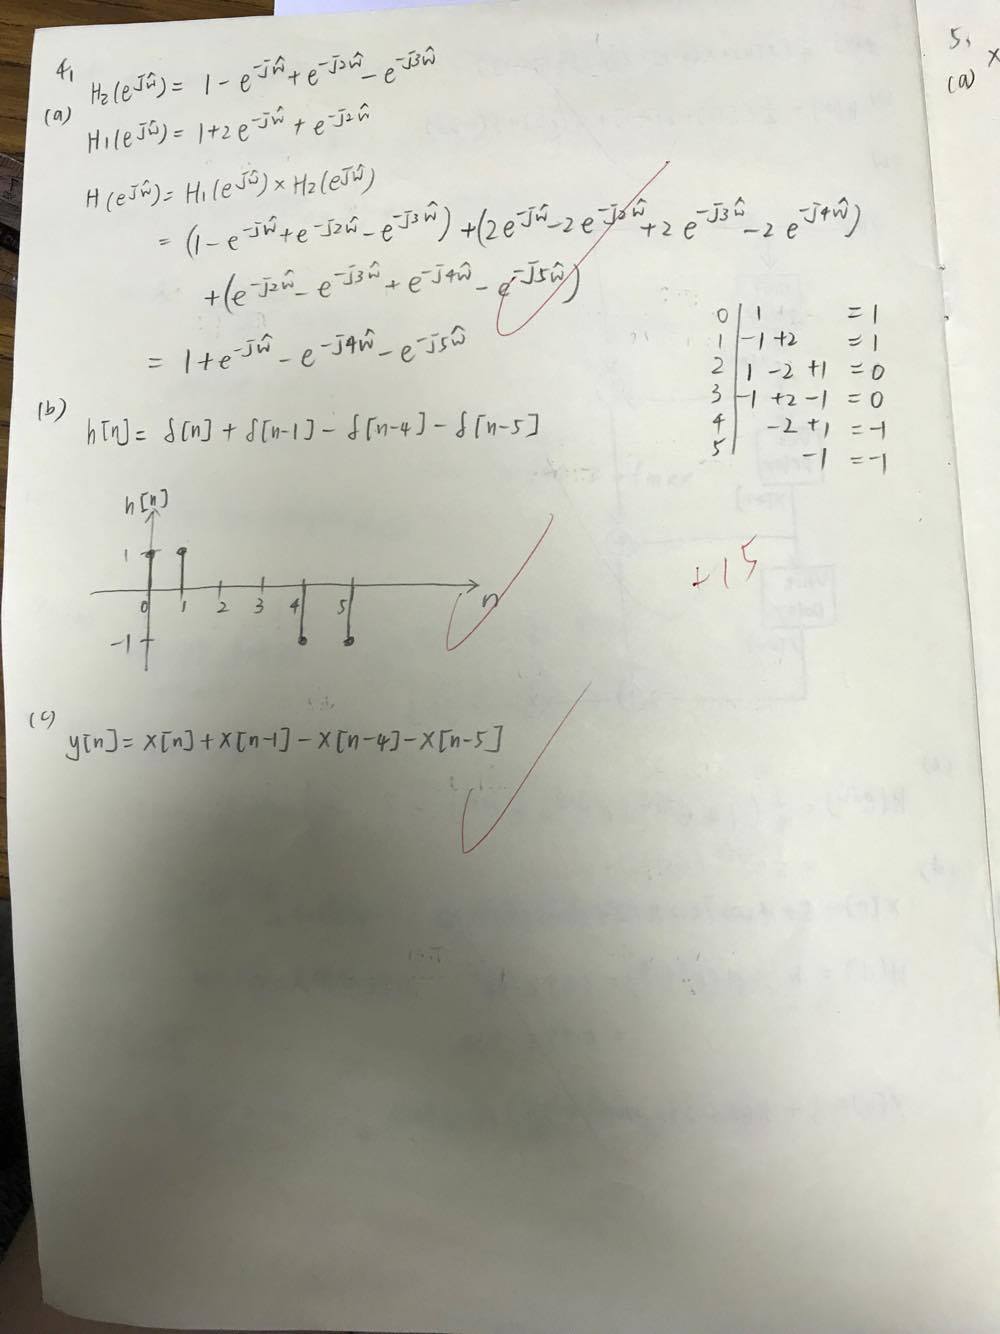 4,
(a) H₂(e^jŵ) = 1 - e^-jŵ + e^-j2ŵ - e^-j3ŵ
H₁(e^jŵ) = 1+2e^-jŵ + e^-j2ŵ
H(e^jŵ) = H₁(e^jŵ) × H₂(e^jŵ)
= (1 - e^-jŵ + e^-j2ŵ - e^-j3ŵ) + (2e^-jŵ - 2e^-j2ŵ + 2e^-j3ŵ - 2e^-j4ŵ)
+ (e^-j2ŵ - e^-j3ŵ + e^-j4ŵ - e^-j5ŵ)
= 1 + e^-jŵ - e^-j4ŵ - e^-j5ŵ
0 | 1 = 1
1 | -1 +2 = 1
2 | 1 -2 +1 = 0
3 | -1 +2 -1 = 0
4 | -2 +1 = -1
5 | -1 = -1
(b) h[n] = δ[n] + δ[n-1] - δ[n-4] - δ[n-5]
h[n]
1
0 1 2 3 4 5 n
-1
+15
(c) y[n] = x[n] + x[n-1] - x[n-4] - x[n-5]
5,
(a) x